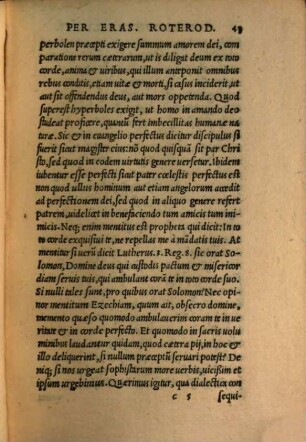 PER ERAS. ROTEROD. 49
perbolen præcepti exigere summum amorem dei, com
paratione rerum cæterarum, ut is diligat deum ex toto
corde, anima & uiribus, qui illum anteponit omnibus
rebus conditis, etiam uitæ & morti, si casus inciderit, ut
aut sit offendendus deus, aut mors oppetenda. Quod
superest hyperboles exigit, ut homo in amando deo
studeat proficere, quanti fert imbecillitas humanæ na
turæ. Sic & in euangelio perfectus dicitur discipulus si
fuerit sicut magister eius: nõ quod quisquã sit par Chri
sto, sed quod in eodem uirtutis genere uersetur. Ibidem
iubentur esse perfecti sicut pater cœlestis perfectus est
non quod ullus hominum aut etiam angelorum accedit
ad perfectionem dei, sed quod in aliquo genere refert
patrem, uidelicet in benefaciendo tum amicis tum ini-
micis. Neq; enim mentitus est propheta qui dicit: In to
to corde exquisiui te, ne repellas me a mãdatis tuis. At
mentitur si uerũ dicit Lutherus. 3. Reg. 8. sic orat Sa-
lomon, Domine deus qui custodis pactum & misericor
diam seruis tuis, qui ambulant corã te in toto corde suo.
Si nulli tales sunt, pro quibus orat Solomon? Nec opi-
nor mentitum Ezechiam, quum ait, obsecro domine,
memento quæso quomodo ambulauerim coram te in ue
ritate & in corde perfecto. Et quomodo in sacris uolu
minibus laudantur quidam, quod cætera pij, in hoc &
illo deliquerint, si nullum præceptũ seruari potest? De
niq; si nos urgeat sophistarum more uerbis, uicissim et
ipsum urgebimus. Quærimus igitur, qua dialectica con
c 5 sequi-